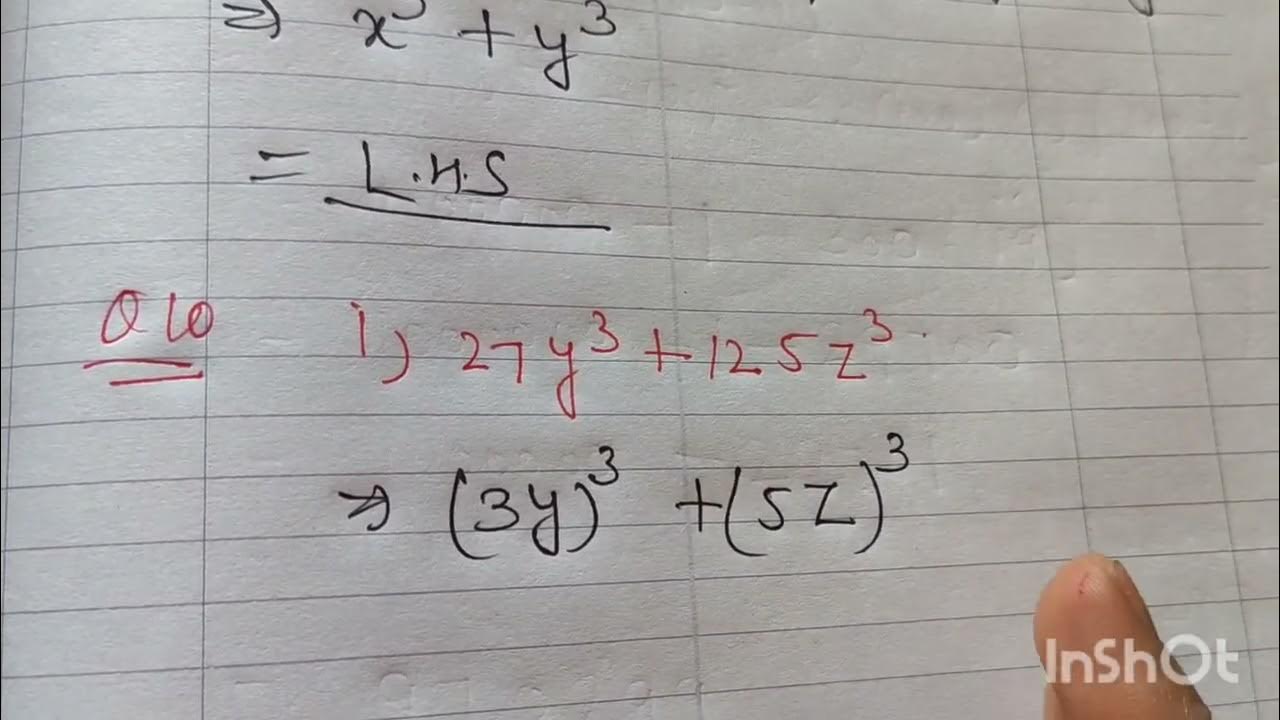 ⇒ x³ + y³
= L.H.S
Q10 i) 27y³ + 125z³
⇒ (3y)³ + (5z)³
InShOt